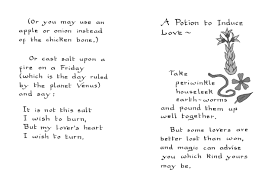 (Or you may use an
apple or onion instead
of the chicken bone.)
Or cast salt upon a
fire on a Friday
(which is the day ruled
by the planet Venus) and
say:
It is not this salt
I wish to burn,
But my lover's heart
I wish to turn.
A Potion to Induce
Love ~
Take
periwinkle
houseleek
earth-worms
and pound them up
well together.
But some lovers are
better lost than won,
and magic can advise
you which kind yours
may be.